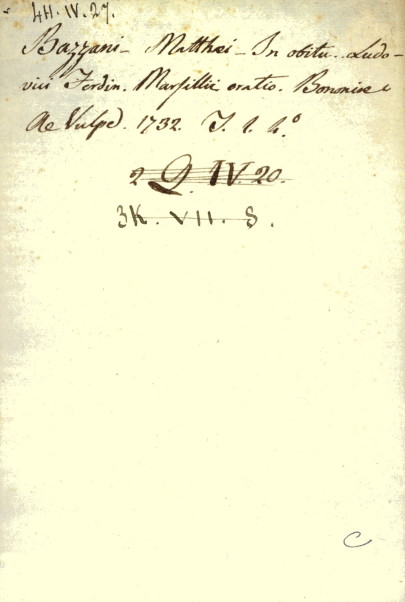 4H. IV. 27.
Bazzani - Matthei - In obitu Ludo-
vici Ferdin. Marsillii oratio. Bononiae
a Vulpe. 1732. T. 1. 4.°
2 Q. IV. 20.
3K. VII. 8.
C